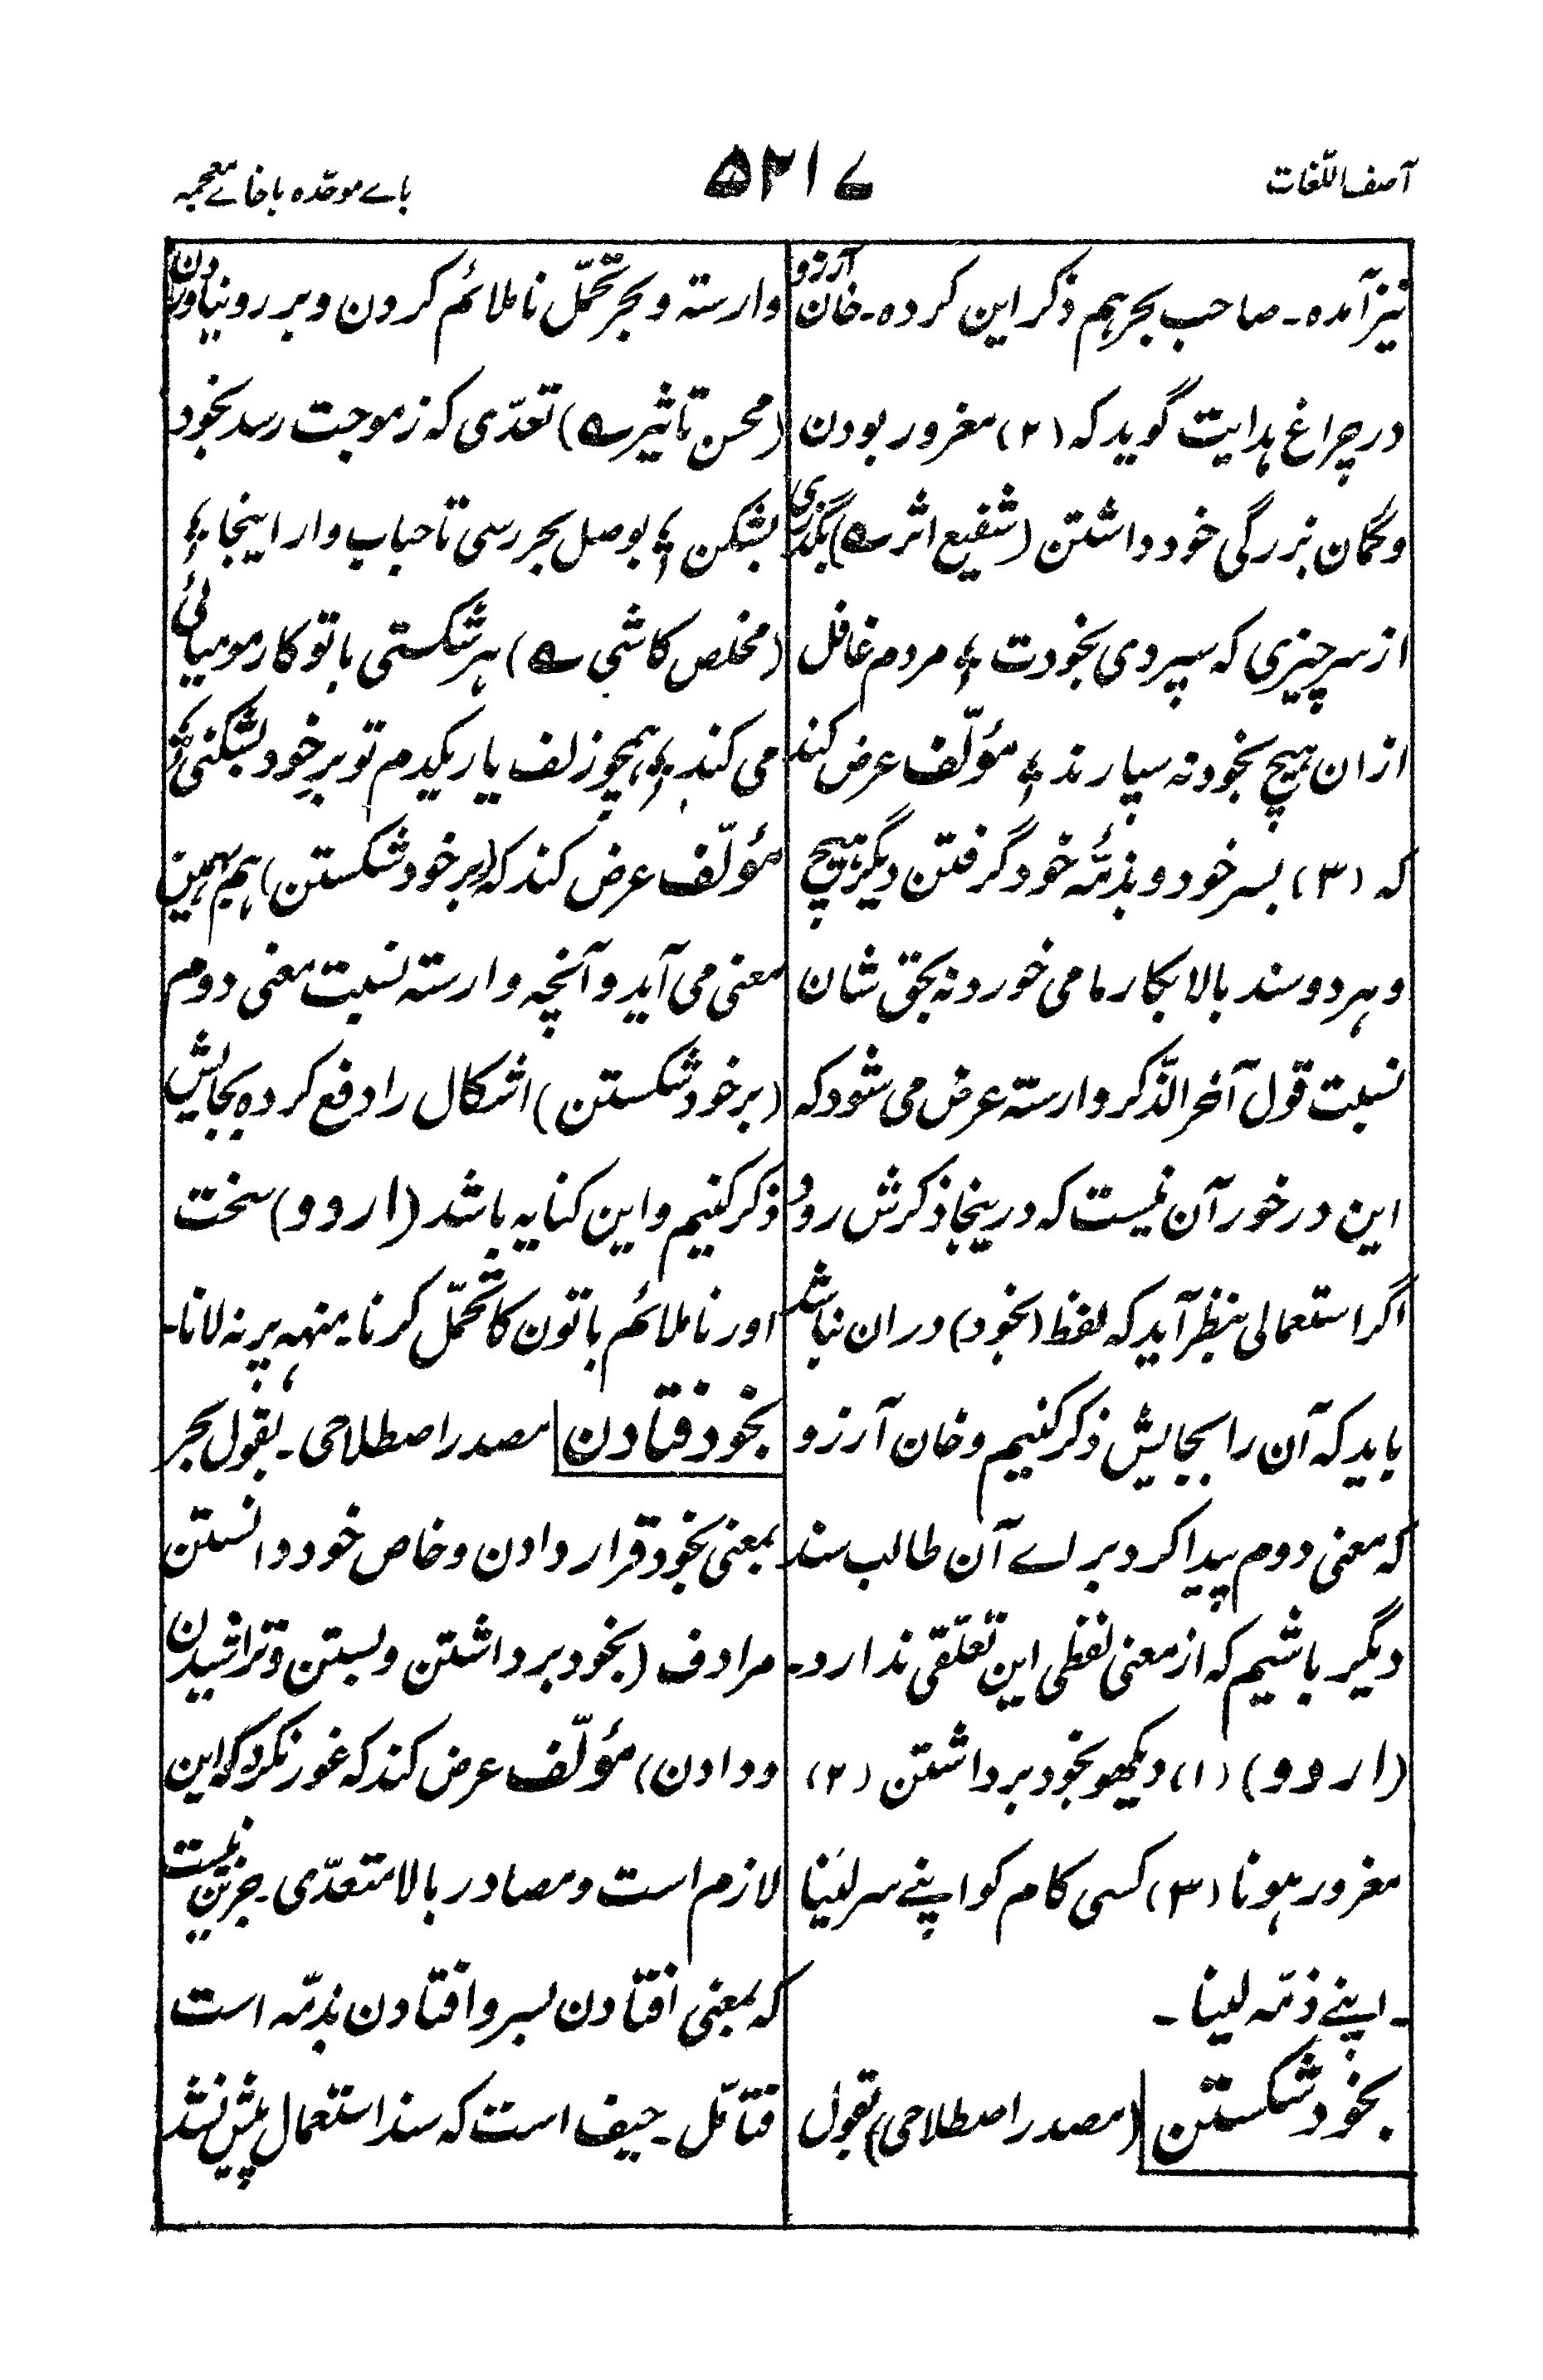 آصف اللّغات
۵۲۱۷
باے موحّدہ باخاے معجمہ
نیز آمدہ ۔ صاحب بحر ہم ذکر این کردہ ۔ خان آرزو
در چراغ ہدایت گوید کہ (۲) مغرور بودن
و گمان بزرگی خود داشتن (شفیع اثر ؎) بگذری
از سر چیزی کہ سپردی بخودت ؛ مردم غافل
ازان ہیچ بخود نہ سپارند ؛ مؤلّف عرض کند
کہ (۳) بسر خود و بذمّہ خود گرفتن دیگر ہیچ
و ہر دو سند بالا بکار ما می خورد نہ بحق شان
نسبت قول آخر الذّکر وارستہ عرض می شود کہ
این در خور آن نیست کہ درینجا ذکرش رود
اگر استعمالی بنظر آید کہ لفظ (بخود) دران نباشد
باید کہ آن را بجایش ذکر کنیم و خان آرزو
کہ معنی دوم پیدا کرد براے آن طالب سند
دیگر باشیم کہ از معنی لفظی این تعلّقی ندارد ۔
(اردو) (۱) دیکھو بخود برداشتن (۲)
مغرور ہونا (۳) کسی کام کو اپنے سر لینا
۔ اپنے ذمّہ لینا ۔
بخود شکستن (مصدر اصطلاحی) بقول
وارستہ و بحر تحمّل ناملائم کردن و بر رو نیاوردن
(محسن تاثیر ؎) تعدّی کہ ز موجت رسد بخود
بشکن ؛ بوصل بحر رسی تا حباب وار اینجا ؛
(مخلص کاشی ؎) ہر شکستی با تو کار مومیائی
می کند ؛ ہمچو زلف یار یکدم تو بر خود بشکنی ؛
مؤلّف عرض کند کہ (بر خود شکستن) ہم بہمین
معنی می آید و آنچہ وارستہ نسبت معنی دوم
(بر خود شکستن) اشکال را دفع کردہ بجایش
ذکر کنیم و این کنایہ باشد (اردو) سخت
اور ناملائم باتون کا تحمّل کرنا ۔ منہہ پر نہ لانا ۔
بخود فتادن مصدر اصطلاحی ۔ بقول بحر
بمعنی بخود قرار دادن و خاص خود دانستن
مرادف (بخود برداشتن و بستن و تراشیدن
و دادن) مؤلّف عرض کند کہ غور نکرد کہ این
لازم است و مصادر بالا متعدّی ۔ جزین نیست
کہ بمعنی افتادن بسر و افتادن بذمّہ است
فتامّل ۔ حیف است کہ سند استعمال پیش نشد